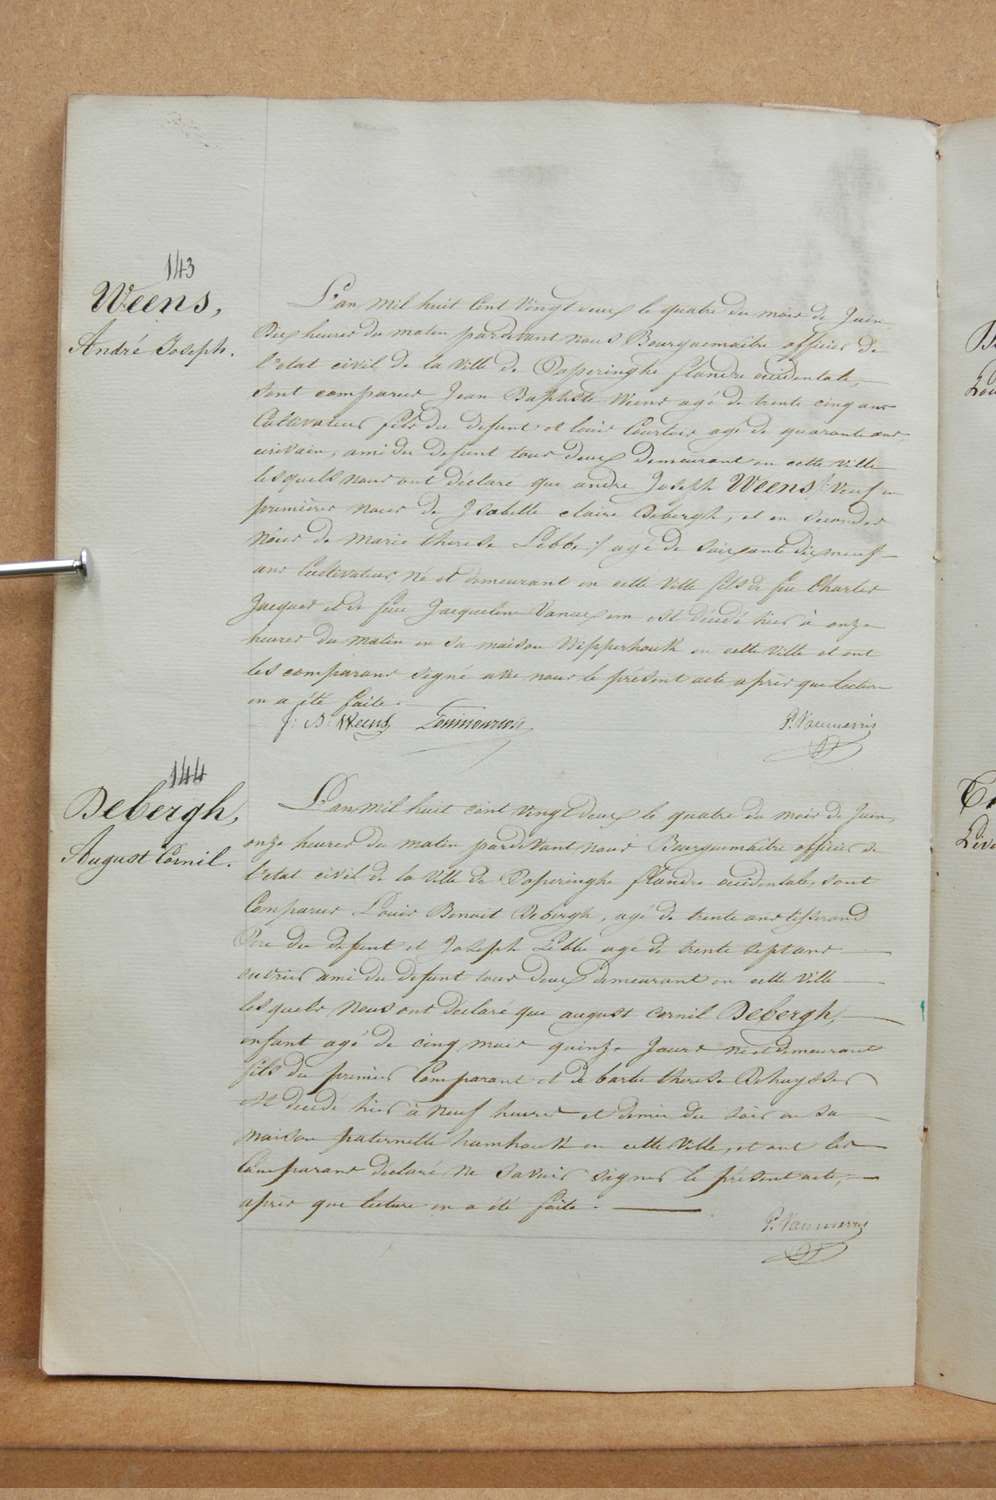 143
Weens,
André Joseph.
L'an mil huit cent vingt deux le quatre du mois de Juin
Dix heures du matin pardevant nous Bourguemaitre officier de
l'etat civil de la ville de Poperinghe flandre occidentale,
sont comparus Jean Baptiste Weens agé de trente cinq ans
Cultivateur fils du defunt et louis Courtois agé de quarante ans
ecrivain, ami du defunt tous deux demeurant en cette ville
lesquels nous ont déclaré que andré Joseph Weens /: Veuf en
premières noces de Isabelle claire Debergh, et en secondes
nôces de marie therese Lebbe :/ agé de soixante dix neuf
ans Cultivateur né et demeurant en cette ville fils de feu Charles
Jacques et de feue Jacqueline est décédé hier à onze
heures du matin en sa maison Wipperhouk en cette ville et ont
les comparans signé avec nous le présent acte après que lecture
en a été faite.
J. B. Weens
P. Vanmerris
144
Debergh,
August Cornil.
L'an mil huit cent vingt deux le quatre du mois de Juin,
onze heures du matin pardevant nous Bourguemaitre officier de
l'etat civil de la ville de Poperinghe flandre occidentale, sont
Comparus Louis Benoit Debergh, agé de trente ans tisserand
Père du defunt et Joseph Lebbe agé de trente sept ans
ouvrier ami du defunt tous deux demeurant en cette ville
lesquels nous ont déclaré que august cornil Debergh,
enfant agé de cinq mois quinze jours né et demeurant
fils du premier Comparant et de barbe therese
est decedé hier à neuf heures et demie du soir en sa
maison paternelle hamhouk en cette ville, et ont les
Comparans déclaré ne savoir signer le présent acte,
après que lecture en a été faite.
P. Vanmerris